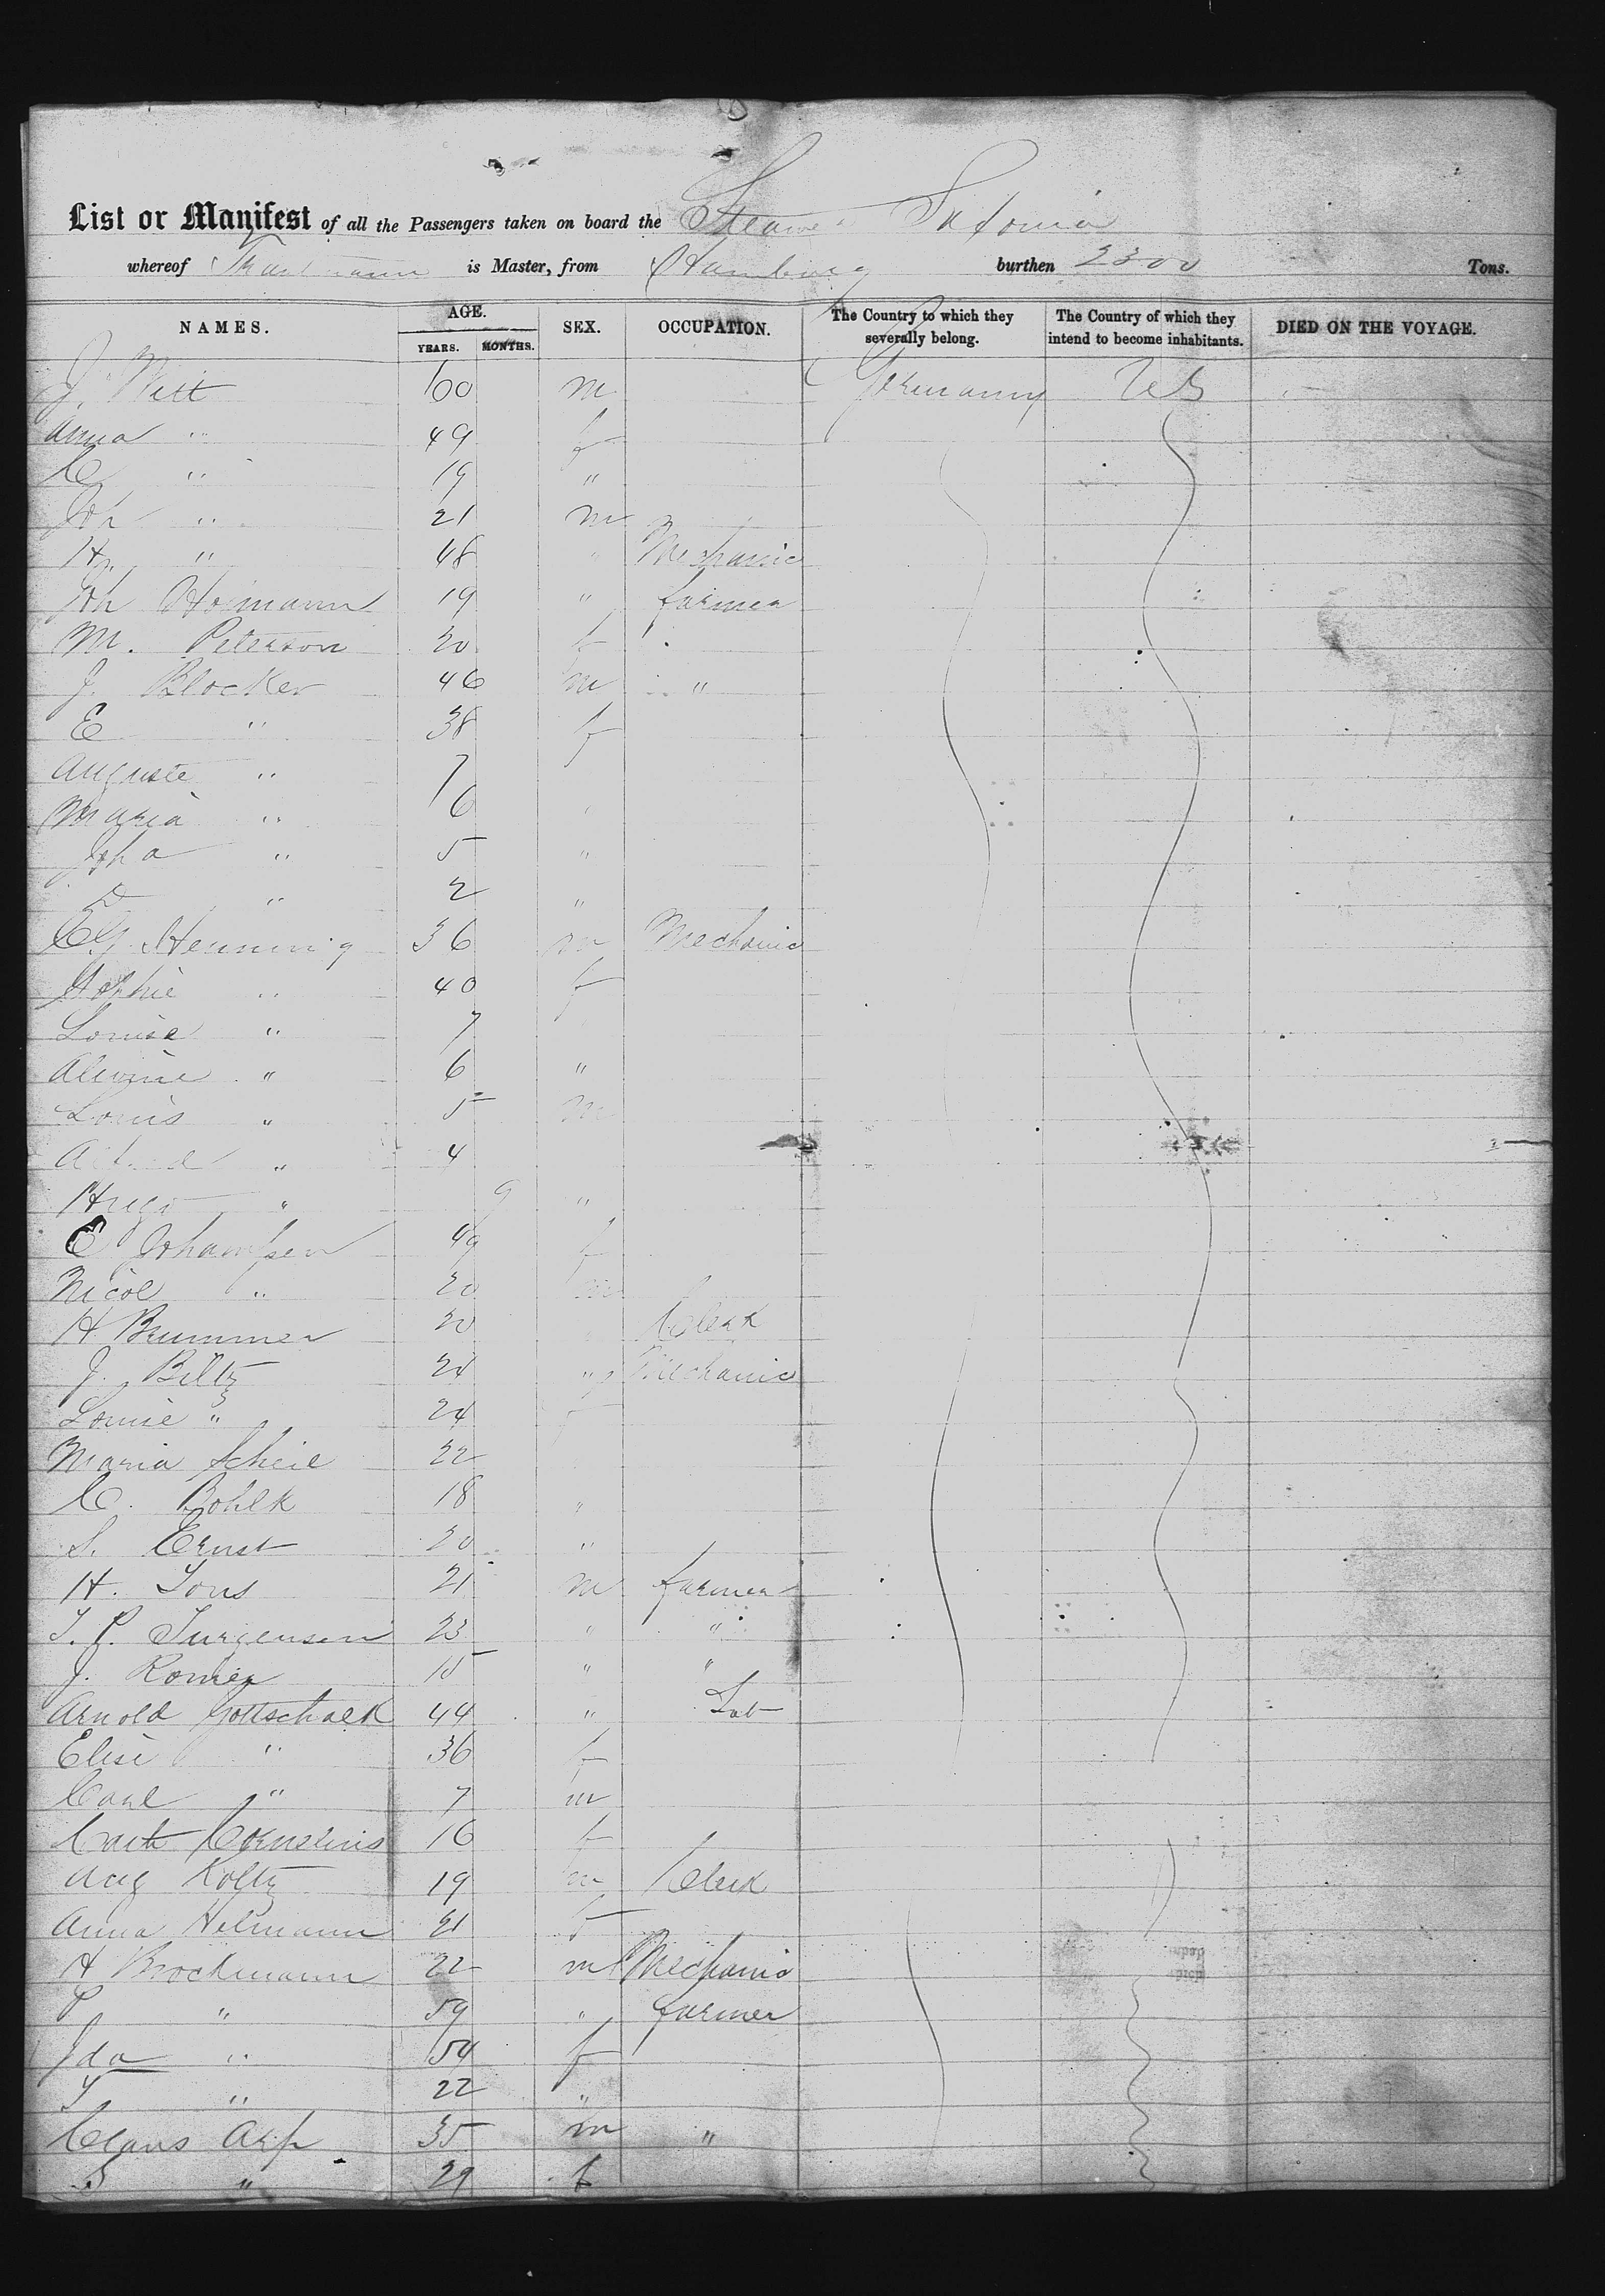 List or Manifest of all the Passengers taken on board the Steamer Saxonia
whereof Trautmann is Master, from Hamburg burthen 2300 Tons.
NAMES. AGE. SEX. OCCUPATION. The Country to which they severally belong. The Country of which they intend to become inhabitants. DIED ON THE VOYAGE.
YEARS. MONTHS.
J. Witt 60 m Germany US
Anna " 49 f
C " 19 "
Joh " 21 m
H. " 48 " Mechanic
Joh Homann 19 " farmer
M. Peterson 20 f
J. Blocker 46 m "
E " 38 f
Auguste " 7
Maria " 6 "
Joh a " 5 "
" 2 "
C G Henning 36 m Mechanic
Sophie " 40 f
Louise " 7
Alwine " 6 "
Louis " 5 m
" 4
Hugo " 9 "
C Johannsen 49 f
Nicol " 20 m
H Brummer 20 Clerk
J. Biltz 24 " Mechanic
Louise " 24 f
Maria Scheil 22
C. Bohlk 18 "
S. Ernst 20 "
H. Tons 21 m farmer
T. P. Jurgensen 23 " "
J. Romer 15 " "
Arnold Gottschalk 44 " Lab
Elise " 36 f
Carl " 7 m
Cath Cornelius 16 f
Aug Koltz 19 m Clerk
Anna Helmann 21 f
H Brockmann 22 m Mechanic
P " 59 " farmer
Ida " 54 f
T " 22 "
Claus Arp 35 m "
S " 29 f